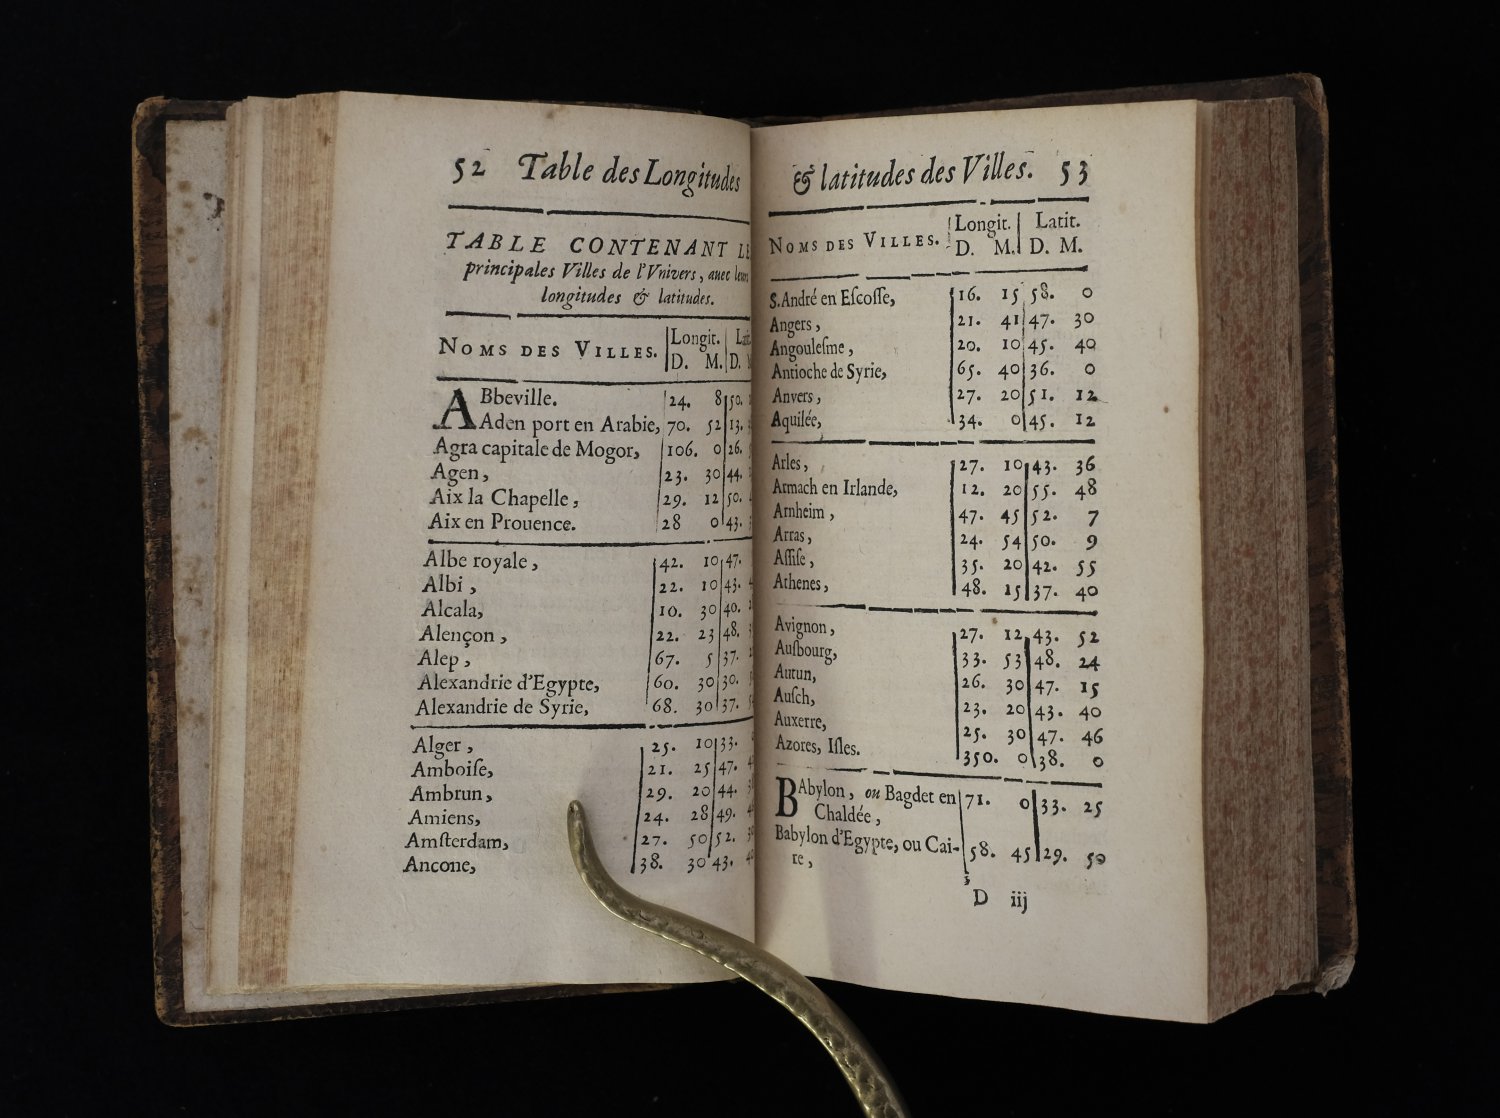 52 Table des Longitudes
TABLE CONTENANT
principales Villes de l'Vnivers, auec
longitudes & latitudes.
NOMS DES VILLES. Longit.
D. M. D.
ABbeville. 24. 8 50.
Aden port en Arabie, 70. 52 13.
Agra capitale de Mogor, 106. 0 26.
Agen, 23. 30 44.
Aix la Chapelle, 29. 12 50.
Aix en Prouence. 28 0 43.
Albe royale, 42. 10 47.
Albi, 22. 10 43.
Alcala, 10. 30 40.
Alençon, 22. 23 48.
Alep, 67. 5 37.
Alexandrie d'Egypte, 60. 30 30.
Alexandrie de Syrie, 68. 30 37.
Alger, 25. 10 33.
Amboiſe, 21. 25 47.
Ambrun, 29. 20 44.
Amiens, 24. 28 49.
Amſterdam, 27. 50 52.
Ancone, 38. 30 43.
& latitudes des Villes. 53
NOMS DES VILLES. Longit. Latit.
D. M. D. M.
S. André en Eſcoſſe, 16. 15 58. 0
Angers, 21. 41 47. 30
Angouleſme, 20. 10 45. 40
Antioche de Syrie, 65. 40 36. 0
Anvers, 27. 20 51. 12
Aquilée, 34. 0 45. 12
Arles, 27. 10 43. 36
Armach en Irlande, 12. 20 55. 48
Arnheim, 47. 45 52. 7
Arras, 24. 54 50. 9
Aſſiſe, 35. 20 42. 55
Athenes, 48. 15 37. 40
Avignon, 27. 12 43. 52
Auſbourg, 33. 53 48. 24
Autun, 26. 30 47. 15
Auſch, 23. 20 43. 40
Auxerre, 25. 30 47. 46
Azores, Iſles. 350. 0 38. 0
BAbylon, ou Bagdet en 71. 0 33. 25
Chaldée,
Babylon d'Egypte, ou Cai- 58. 45 29. 50
re,
D iij